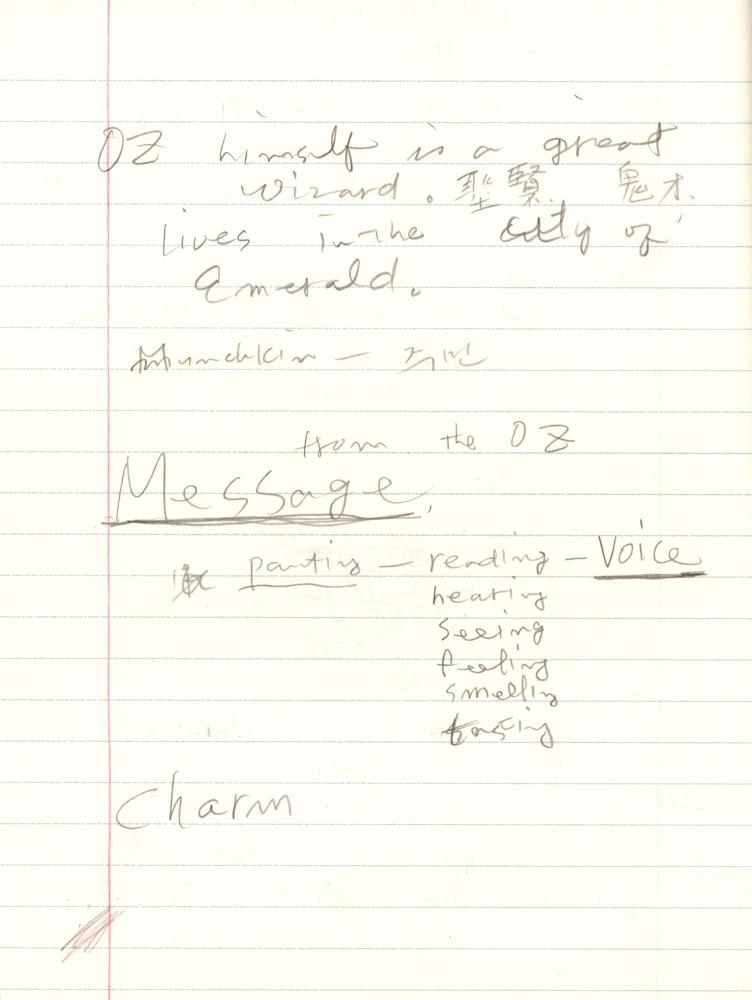 OZ himself is a great
wizard. 聖賢. 鬼才.
lives in the city of
Emerald.
Munchkin — 주민
from the OZ
Message.
panting — reading — Voice
hearing
seeing
feeling
smelling
tasting
Charm